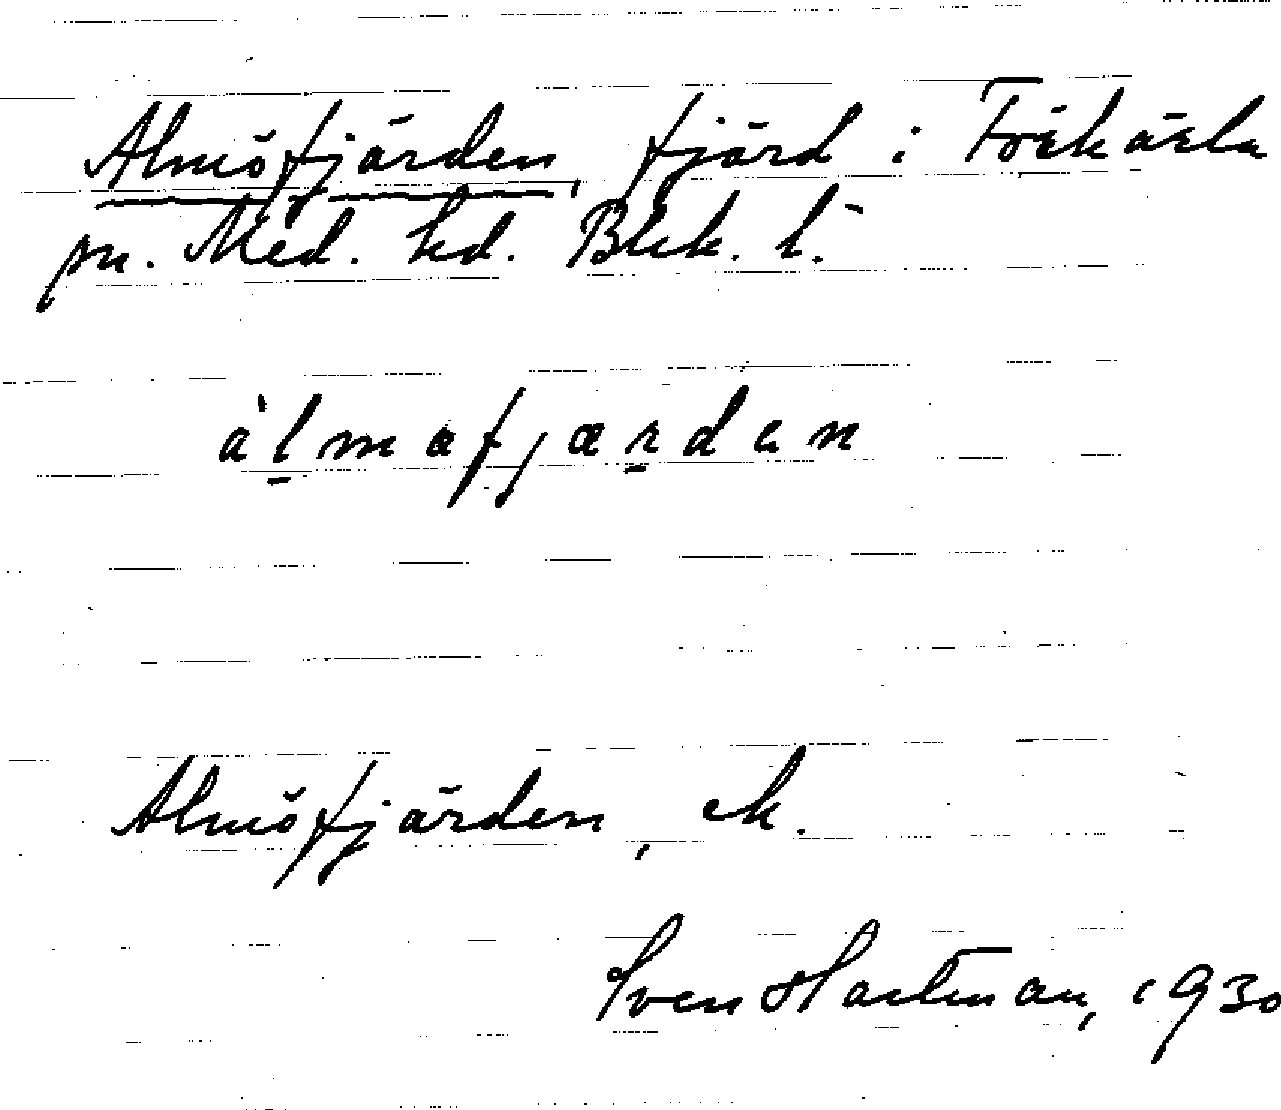 Almöfjärden, fjärd i Förkärla
sn. Med. hd. Blek. l.
àlmafjærden
Almöfjärden, ek.
Sven Hartman, 1930